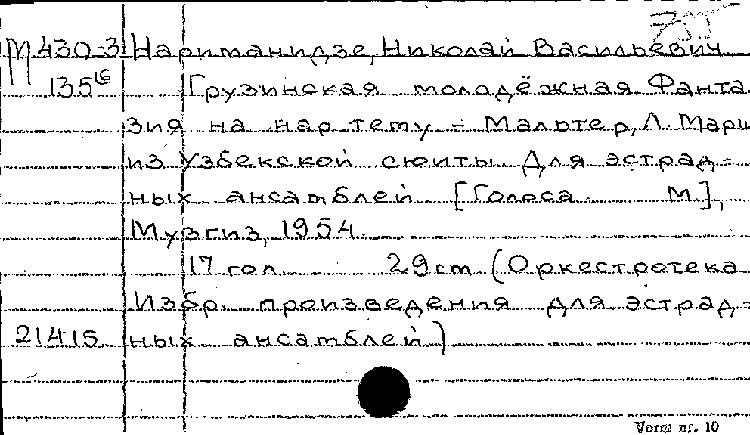 М 430-3 Нариманидзе, Николай Васильевич
135 16 Грузинская молодёжная Фанта
зия на нар. тему. – Мальтер, Л. Марш
из Узбекской сюиты. Для эстрад-
ных ансамблей [Голоса М],
Музгиз, 1954.
17 гол 29 cm (Оркестротека
Избр. произведения для эстрад-
21415 ных ансамблей)
Vorm nr. 10